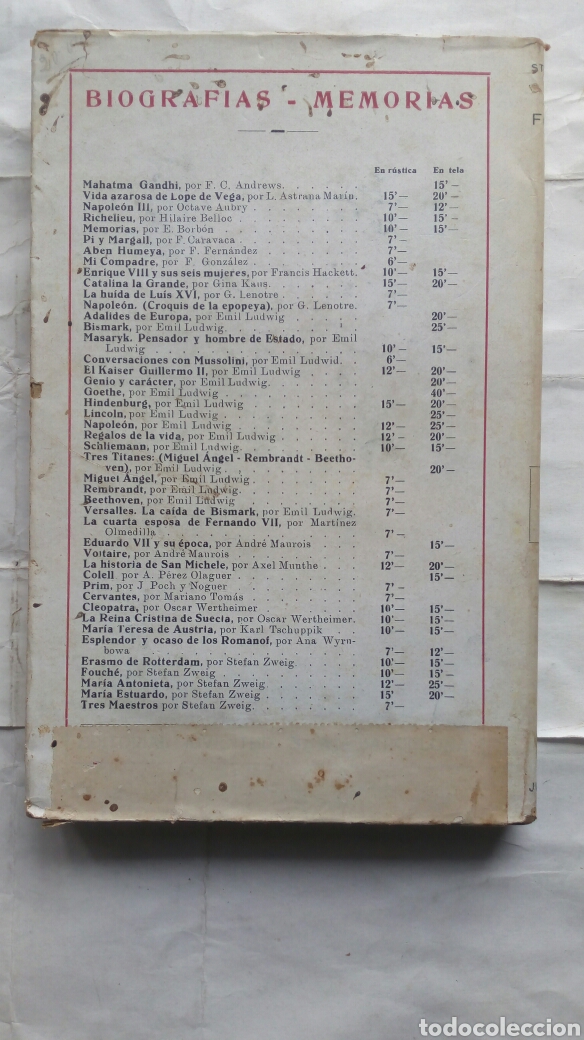 BIOGRAFIAS - MEMORIAS
En rústica En tela
Mahatma Gandhi, por F. C. Andrews. . . . . . 15'—
Vida azarosa de Lope de Vega, por L. Astrana Marín. 15'— 20'—
Napoleón III, por Octave Aubry . . . . . . 7'— 12'—
Richelieu, por Hilaire Belloc . . . . . . 10'— 15'—
Memorias, por E. Borbón . . . . . . 10'— 15'—
Pi y Margall, por F. Caravaca . . . . . . 7'—
Aben Humeya, por F. Fernández . . . . . . 7'—
Mi Compadre, por F. González . . . . . . 6'—
Enrique VIII y sus seis mujeres, por Francis Hackett. 10'— 15'—
Catalina la Grande, por Gina Kaus. . . . . . 15'— 20'—
La huída de Luis XVI, por G. Lenotre. . . . 7'—
Napoleón. (Croquis de la epopeya), por G. Lenotre. 7'—
Adalides de Europa, por Emil Ludwig . . . . 20'—
Bismark, por Emil Ludwig. . . . . . 25'—
Masaryk. Pensador y hombre de Estado, por Emil
Ludwig . . . . . . 10'— 15'—
Conversaciones con Mussolini, por Emil Ludwid. . 6'—
El Kaiser Guillermo II, por Emil Ludwig . . . 12'— 20'—
Genio y carácter, por Emil Ludwig. . . . . . 20'—
Goethe, por Emil Ludwig . . . . . . 40'—
Hindenburg, por Emil Ludwig . . . . . . 15'— 20'—
Lincoln, por Emil Ludwig . . . . . . 25'—
Napoleón, por Emil Ludwig . . . . . . 12'— 25'—
Regalos de la vida, por Emil Ludwig . . . . 12'— 20'—
Schliemann, por Emil Ludwig. . . . . . 10'— 15'—
Tres Titanes: (Miguel Ángel - Rembrandt - Beetho-
ven), por Emil Ludwig . . . . . . 20'—
Miguel Ángel, por Emil Ludwig. . . . . . 7'—
Rembrandt, por Emil Ludwig. . . . . . 7'—
Beethoven, por Emil Ludwig . . . . . . 7'—
Versalles. La caída de Bismark, por Emil Ludwig. . 7'—
La cuarta esposa de Fernando VII, por Martínez
Olmedilla . . . . . . 7'—
Eduardo VII y su época, por André Maurois . . . 15'—
Voltaire, por André Maurois . . . . . . 7'—
La historia de San Michele, por Axel Munthe . . 12'— 20'—
Colell por A. Pérez Olaguer . . . . . . 15'—
Prim, por J Poch y Noguer . . . . . . 7'—
Cervantes, por Mariano Tomás . . . . . . 7'—
Cleopatra, por Oscar Wertheimer . . . . . . 10'— 15'—
La Reina Cristina de Suecia, por Oscar Wertheimer. 10'— 15'—
María Teresa de Austria, por Karl Tschuppik . . . 10'— 15'—
Esplendor y ocaso de los Romanof, por Ana Wyrn-
bowa . . . . . . 7'— 12'—
Erasmo de Rotterdam, por Stefan Zweig. . . . 10'— 15'—
Fouché, por Stefan Zweig . . . . . . 10'— 15'—
María Antonieta, por Stefan Zweig . . . . . 12'— 25'—
María Estuardo, por Stefan Zweig. . . . . . 15' 20'—
Tres Maestros por Stefan Zweig. . . . . . 7'—
todocoleccion